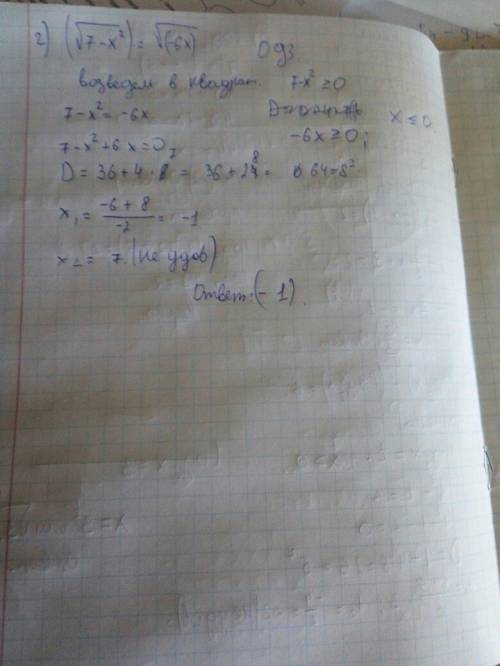 г) (√7-x²) = √(-6x) ОДЗ
возведем в квадрат. 7-x² ≥ 0
7-x² = -6x
-6x ≥ 0; x ≤ 0
7-x²+6x=0,
D = 36+4· = 36+28 = 64=8²
x₁ = (-6+8)/-2 = -1
x₂ = 7. (не удов)
Ответ: (-1).